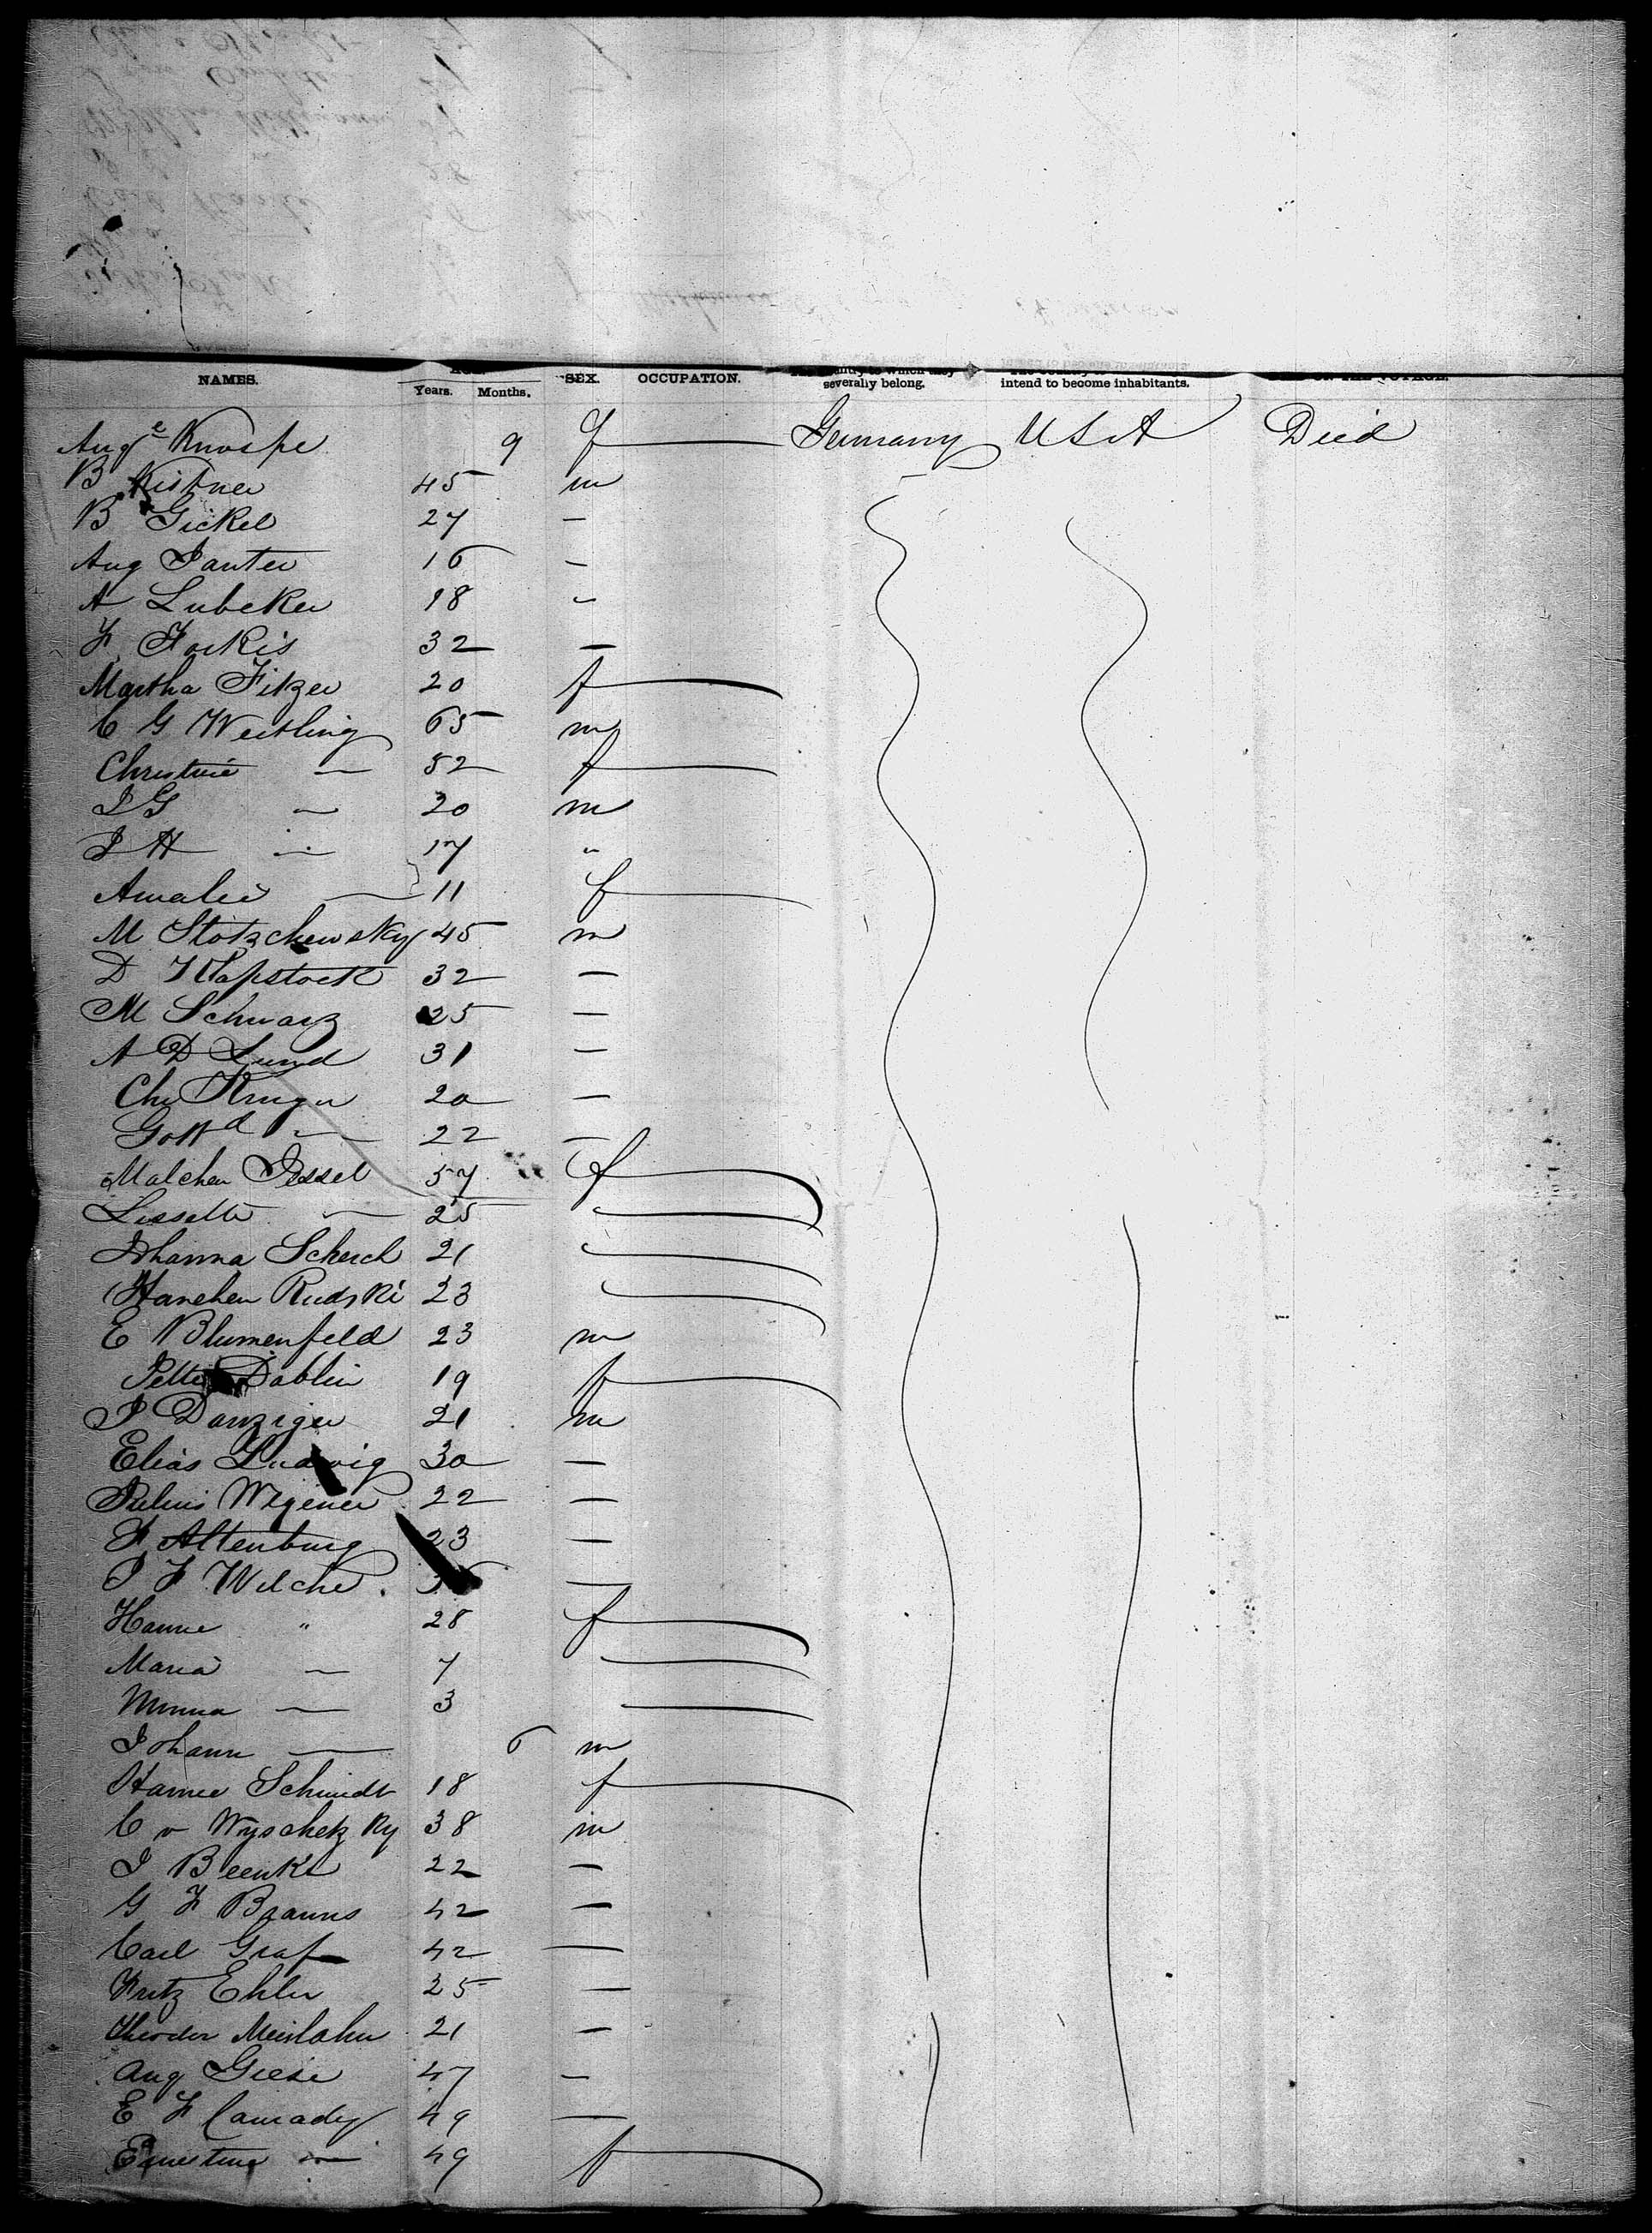 NAMES. Years. Months. SEX. OCCUPATION. severally belong. intend to become inhabitants.
Auge Knospe 9 f Germany USA Died
B Kistner 45 m
B Gickel 27 —
Aug Janter 16 —
A Lubeker 18 -
F. Forkis 32 —
Martha Fitzer 20 f
C G Weitling 65 m
Christine — 52 f
I G — 20 m
I H — 17 "
Amalie — 11 f
M Stotzchewsky 45 m
D Klapstock 32 —
M Schwarz 25 —
A D Lund 31 —
Chr Kruger 20 —
Gottd — 22 —
Malchen Jessel 57 f
Lissette — 25
Johanna Scherch 21
Hanchen Rudski 23
E Blumenfeld 23 m
Dablin 19 f
J Danziger 21 m
Elias Ludwig 30 —
Julius Wegener 22 —
F Altenburg 23 —
J F Wilche —
Hanne " 28 f
Maria — 7
Minna — 3
Johann — 6 m
Hanne Schmidt 18 f
C v Wyschetzky 38 m
J Beenke 22 —
G F Brauns 42 —
Carl Graf 42 —
Fritz Ehler 25 —
Theodor Meinlahn 21 —
Aug Giese 47 —
E F Camrady 49 —
Ernestine — 49 f